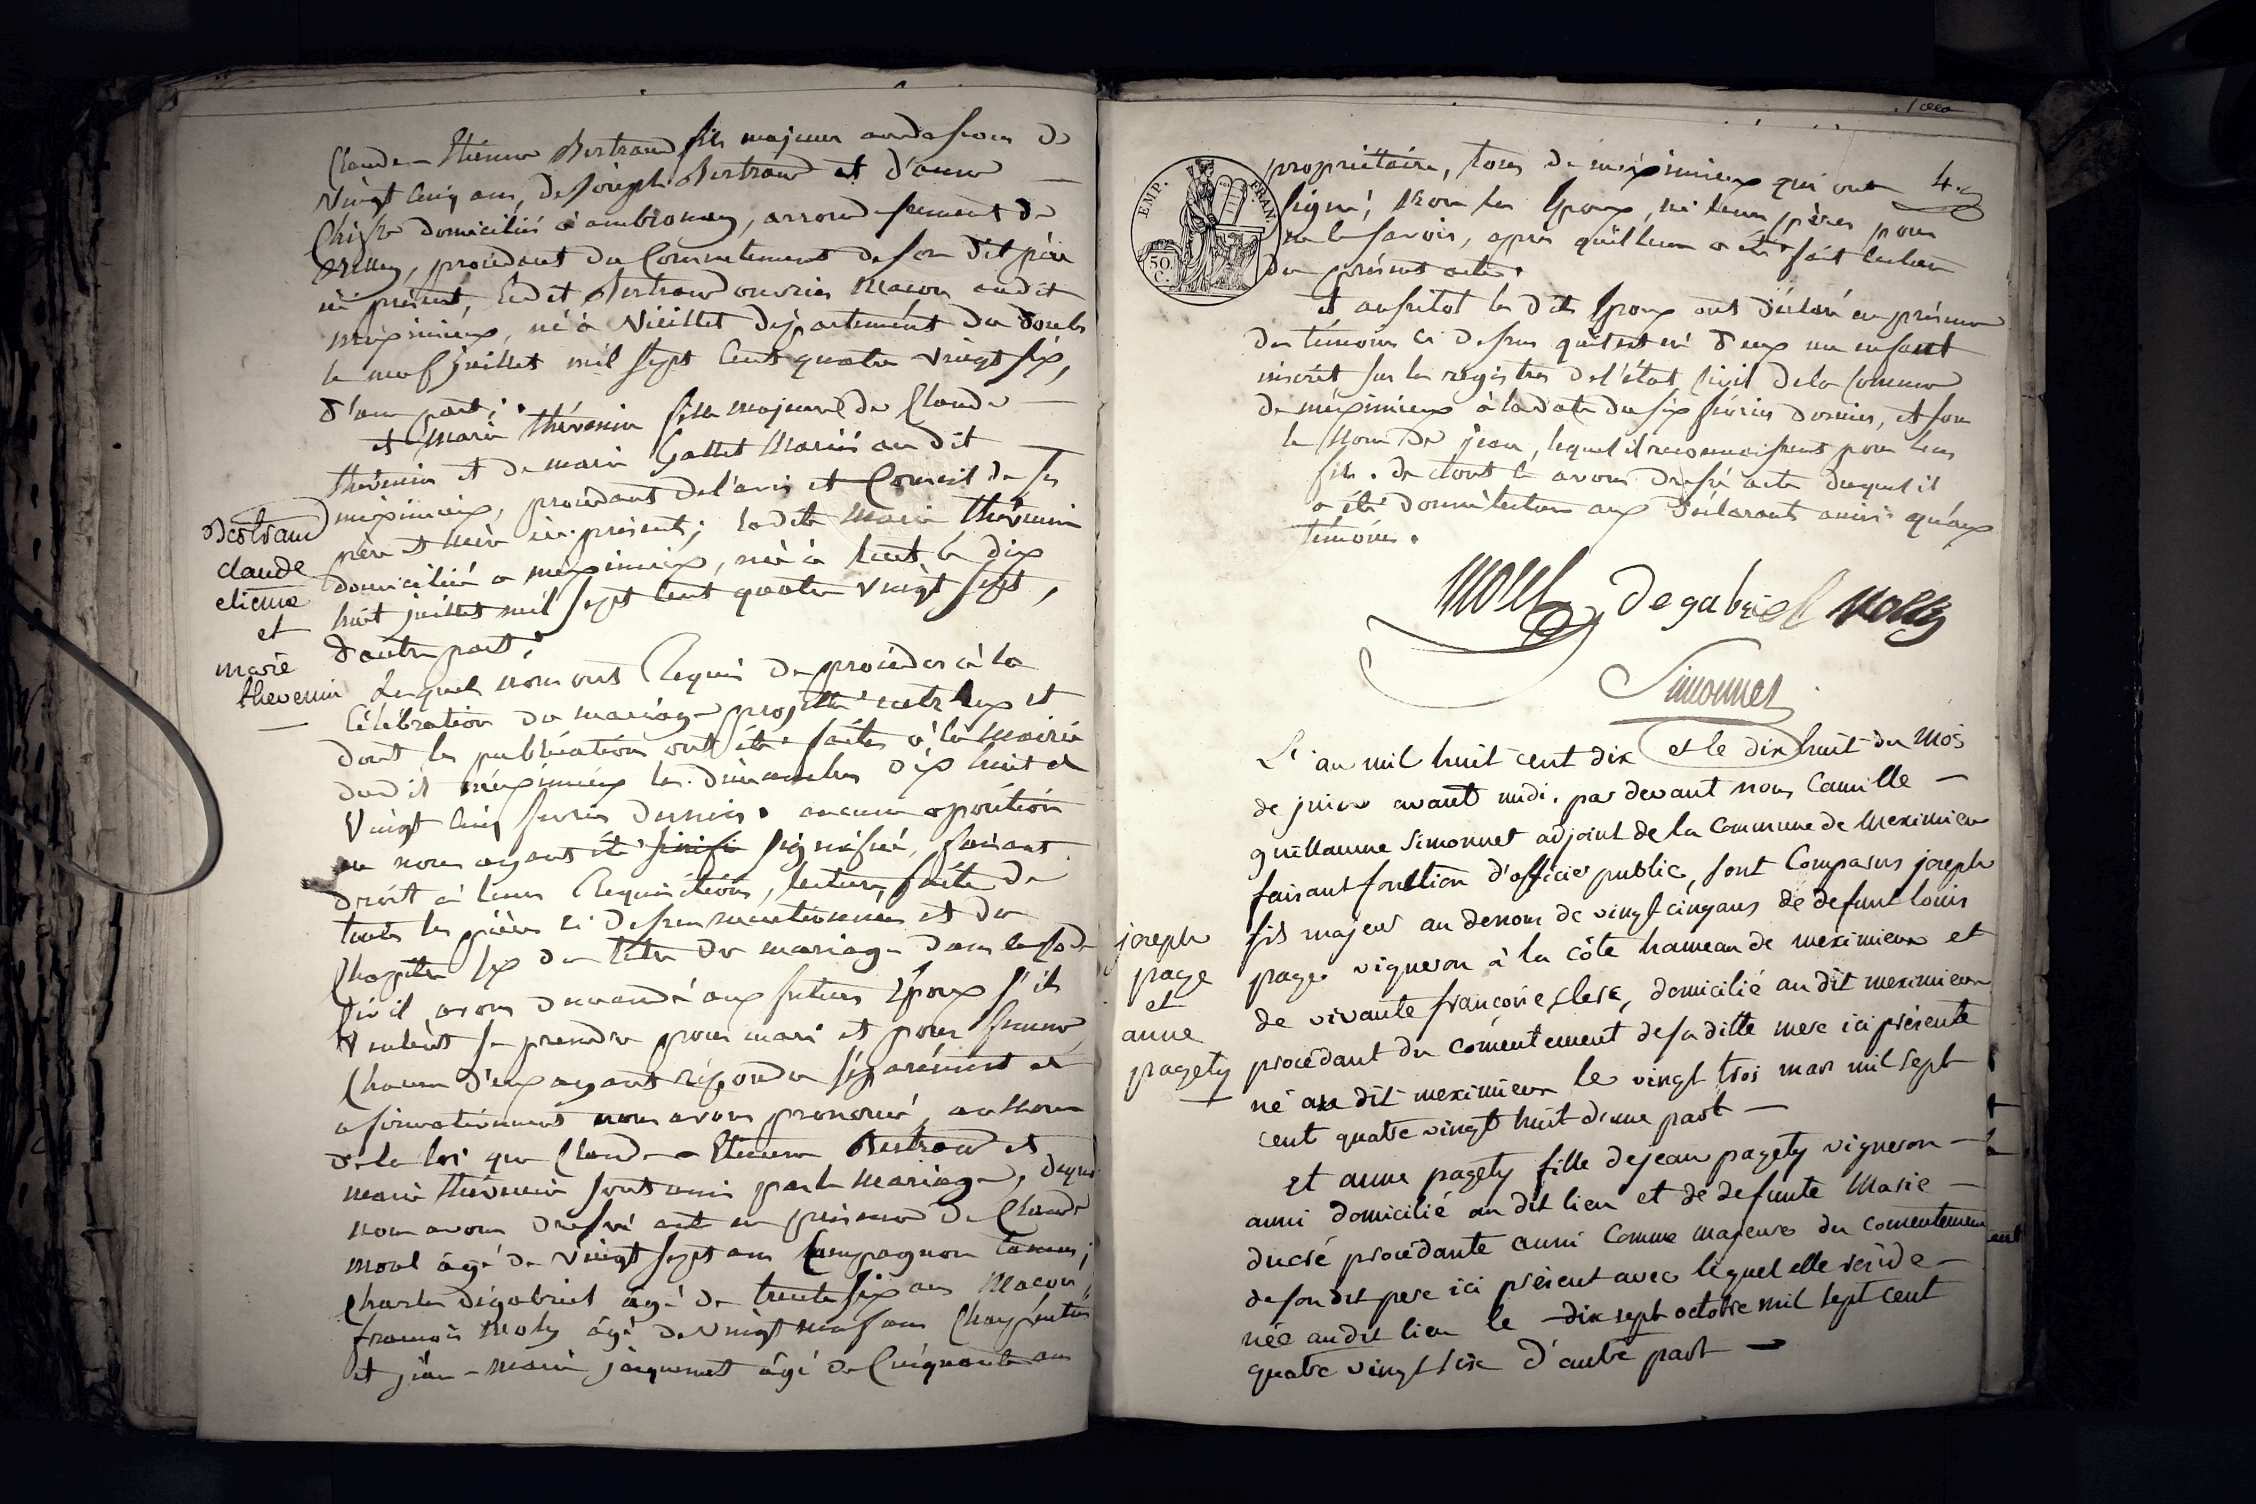 Claude Etienne Bertrand fils majeur au dessous de
vingt cinq ans, de Joseph Bertrand et d'anne
domiciliés à ambronay, arrondissement de
procédant du Consentement de son dit père
ici présent, ledit Bertrand ouvrier Macon audit
meximieux, né à département du Doubs
le neuf juillet mil sept cent quatre vingt six,
d'une part;
et marie thévenin fille majeure de Claude
thévenin et de marie Gallet Mariés au dit
meximieux, procédant de l'avis et Conseil de ses
père et mère ici présent; ladite Marie thévenin
domiciliée a meximieux, née à le dix
huit juillet mil sept cent quatre vingt sept,
d'autre part;
Bertrand
claude
etienne
et
marie
thevenin
Lesquels nous ont Requis de procéder à la
Célébration du mariage projetté entr'eux et
dont les publications ont été faites à la Mairie
dudit meximieux les dimanches dix huit et
Vingt cinq fevrier dernier. aucune oposition
ne nous ayant été signifiée, faisant
droit à leur Requisition, lecture faite de
toutes les pièces ci dessus mentionnées et du
Chapitre six du titre du mariage dans le code
Civil avons demandé aux futurs Epoux s'ils
Veulent se prendre pour mari et pour femme,
Chacun d'eux ayant répondu séparément et
afirmativement nous avons prononcé au nom
de la loi que Claude Etienne Bertrand et
marie thévenin sont unis par le Mariage, de quoi
nous avons dressé acte en présence de Claude
morel âgé de vingt sept ans Compagnon
Charles Degabriel âgé de trente six ans Macon,
francois Moly âgé de vingt neuf ans Charpentier
et jean-marie jacquemet âgé de Cinquante ans
4.e
EMP. FRAN.
50.
C.
propriétaire, tous de meximieux qui ont
signé; Non les Epoux, ni leurs pères pour
ne le savoir, après qu'il leur a été fait lecture
du présent acte.
Et aussitot les dits Epoux ont déclaré en présence
des témoins ci dessus qu'il est né d'eux un enfant
inscrit sur les registres de l'état Civil de la Commune
de meximieux à la date du six février dernier, et sous
le Nom de jean, lequel il reconnoissent pour leur
fils. de dont le avons dressé acte duquel il
a été donné lecture aux déclarants ainsi qu'aux
témoins.
Morel Degabriel Molly
Simonnet
L'an mil huit cent dix et le dix huit du mois
de juin avant midi. par devant nous Camille
guillaume Simonnet adjoint de la Commune de Meximieux
faisant fonction d'officier public, sont Comparus joseph
fils majeur au dessous de vingt cinq ans de defunt louis
page vigneron à la côte hameau de meximieux et
de vivante francoise clerc, domicilié au dit meximieux
procédant du comentement de sa ditte mere ici présente
né au dit meximieux le vingt trois mars mil sept
cent quatre vingt huit d'une part
joseph
page
et
anne
pagety
et anne pagety fille de jean pagety vigneron
aussi domicilié au dit lieu et de defunte Marie
ducré procédante aussi Comme majeure du comentement
de son dit pere ici présent avec lequel elle réside
née audit lieu le dix sept octobre mil sept cent
quatre vingt d'autre part